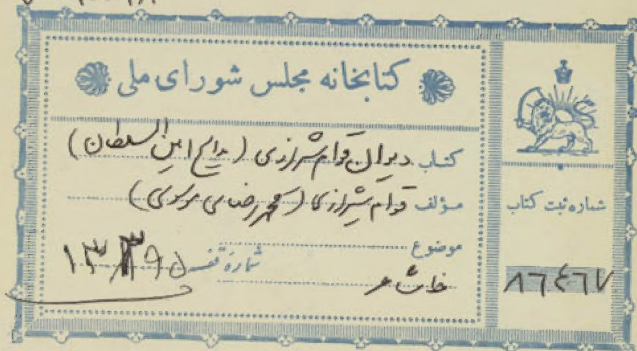 کتابخانه مجلس شورای ملی
کتاب دیوان قوام شیرازی (مدایح امین السلطان)
مؤلف قوام شیرازی (محمدرضای موسوی)
موضوع
شمارهٔ قفسه ۱۳۳۹۵
خاش عر
شماره ثبت کتاب
۸۶۴۶۷